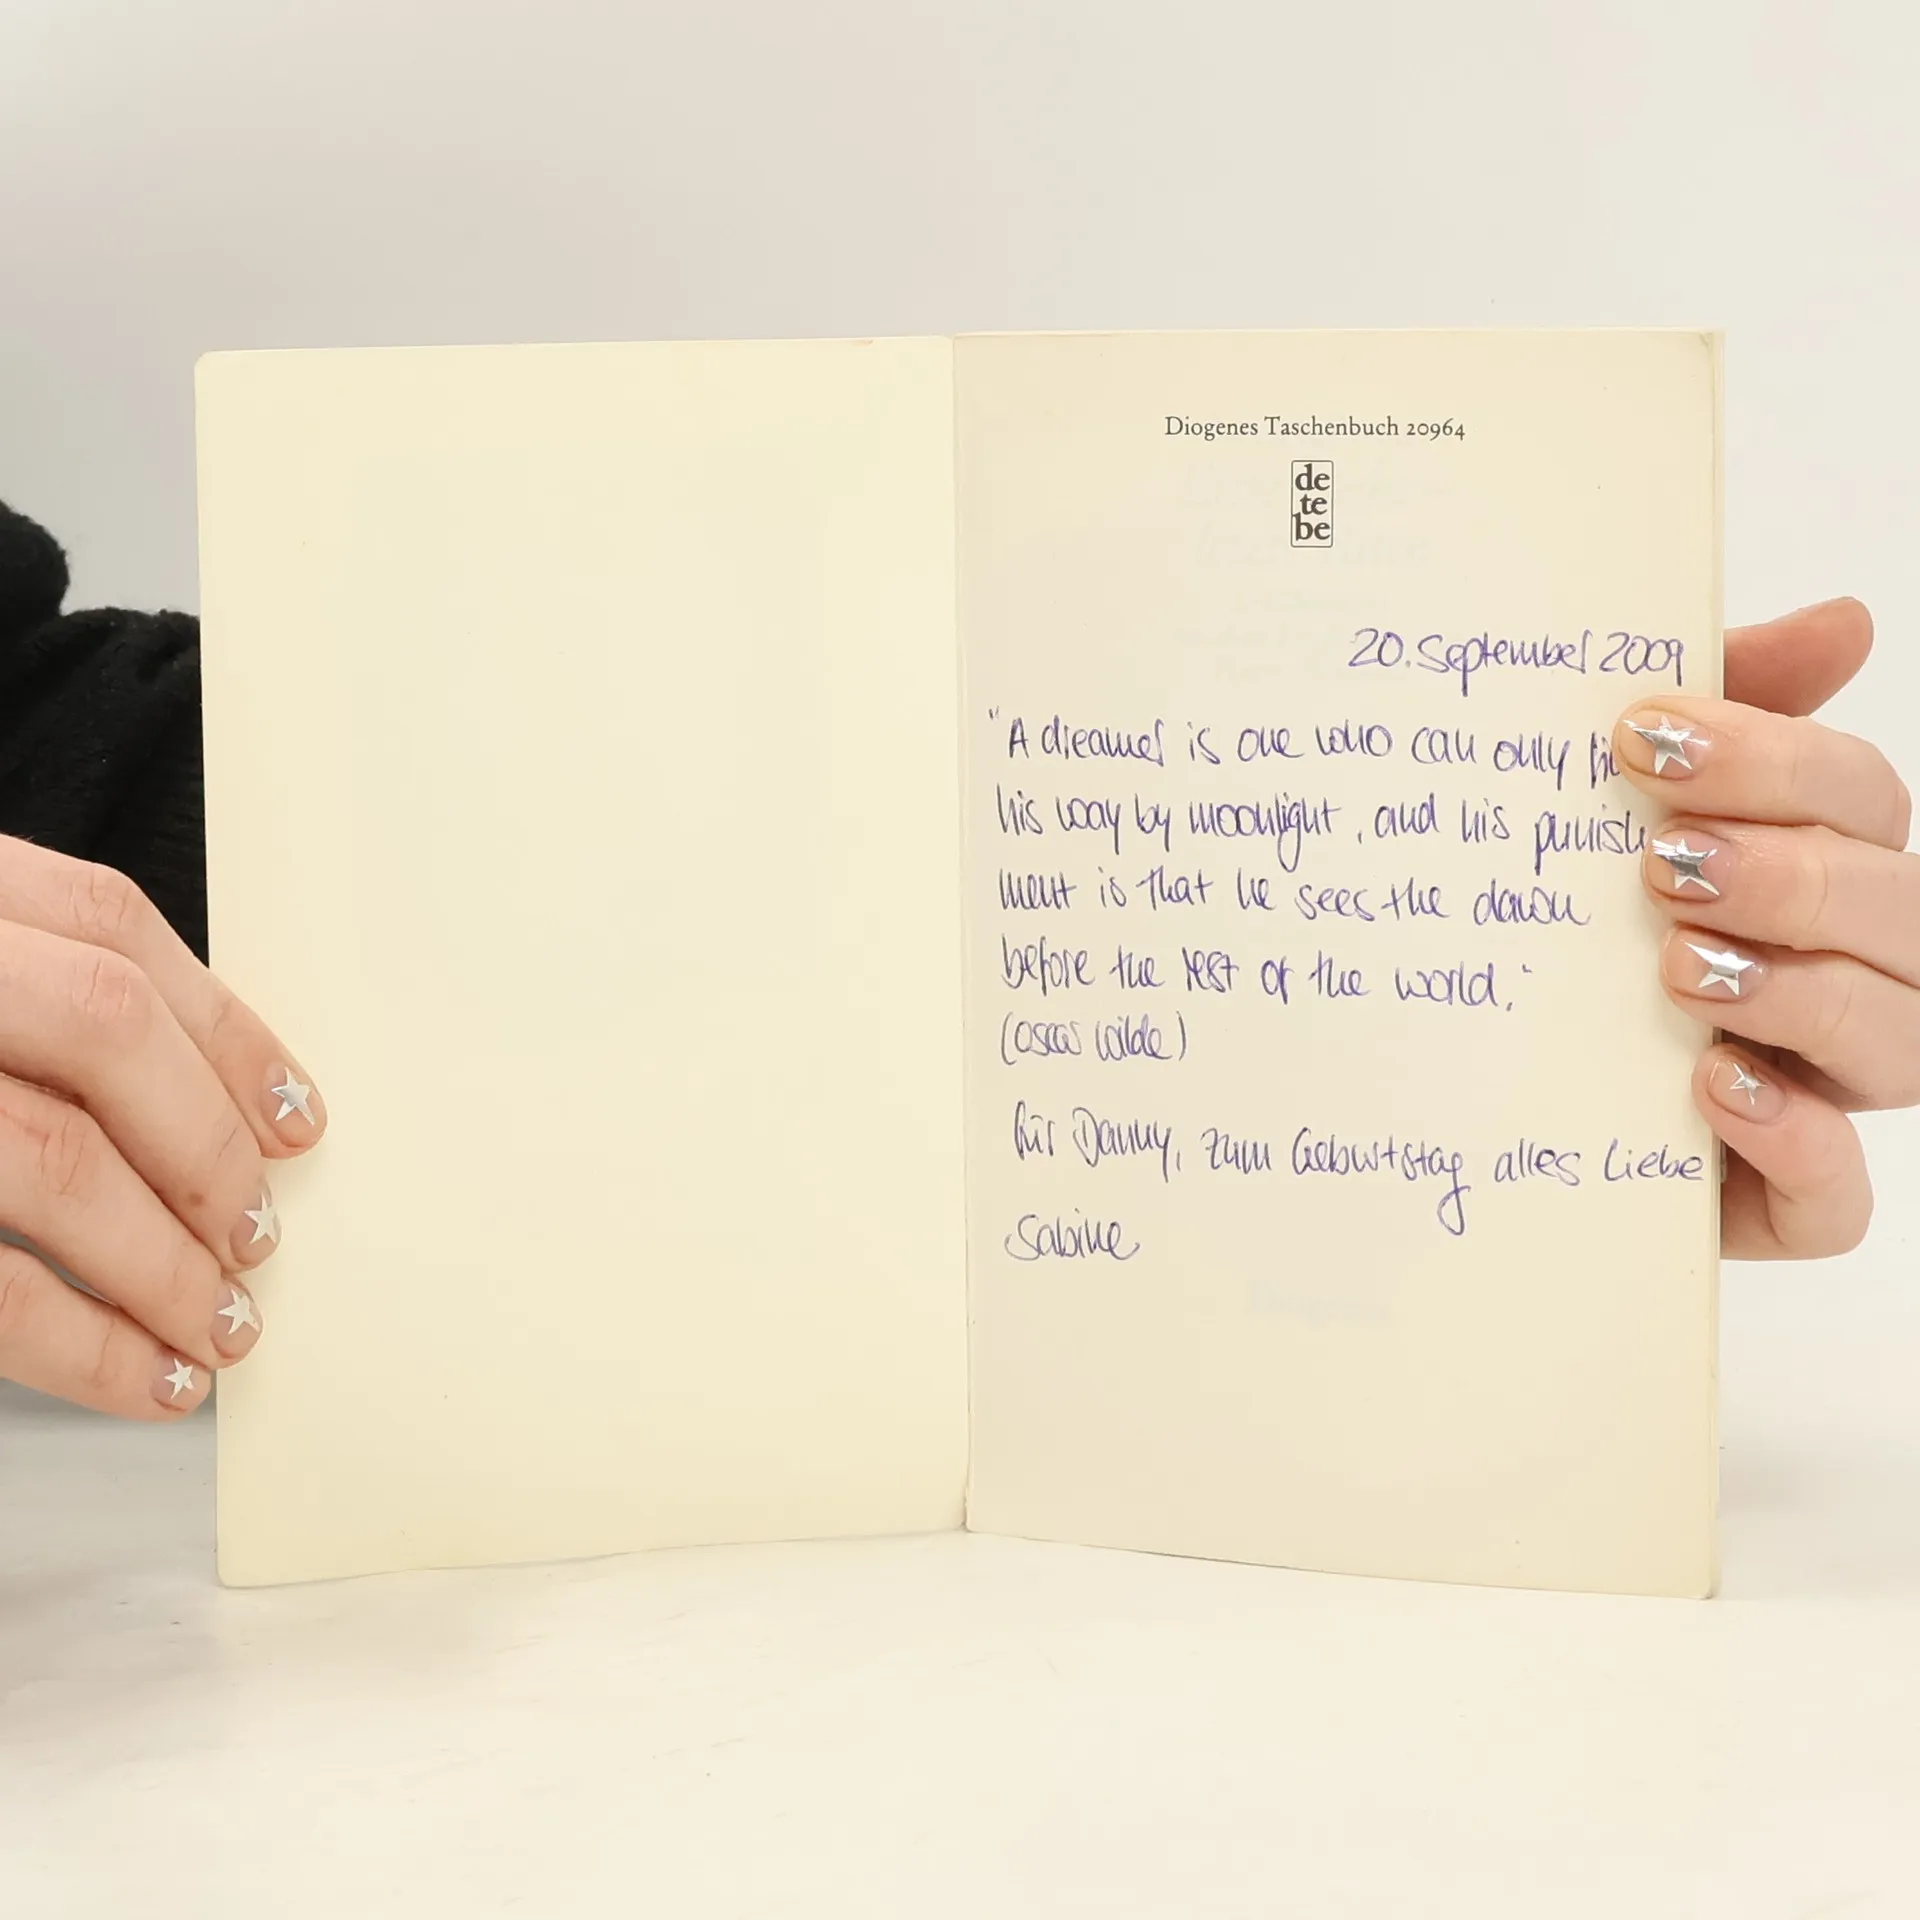 Diogenes Taschenbuch 20964
de
te
be
20. September 2009
"A dreamer is one who can only
his way by moonlight, and his punish
ment is that he sees the dawn
before the rest of the world."
(Oscar Wilde)
für Danny, zum Geburtstag alles Liebe
Sabine